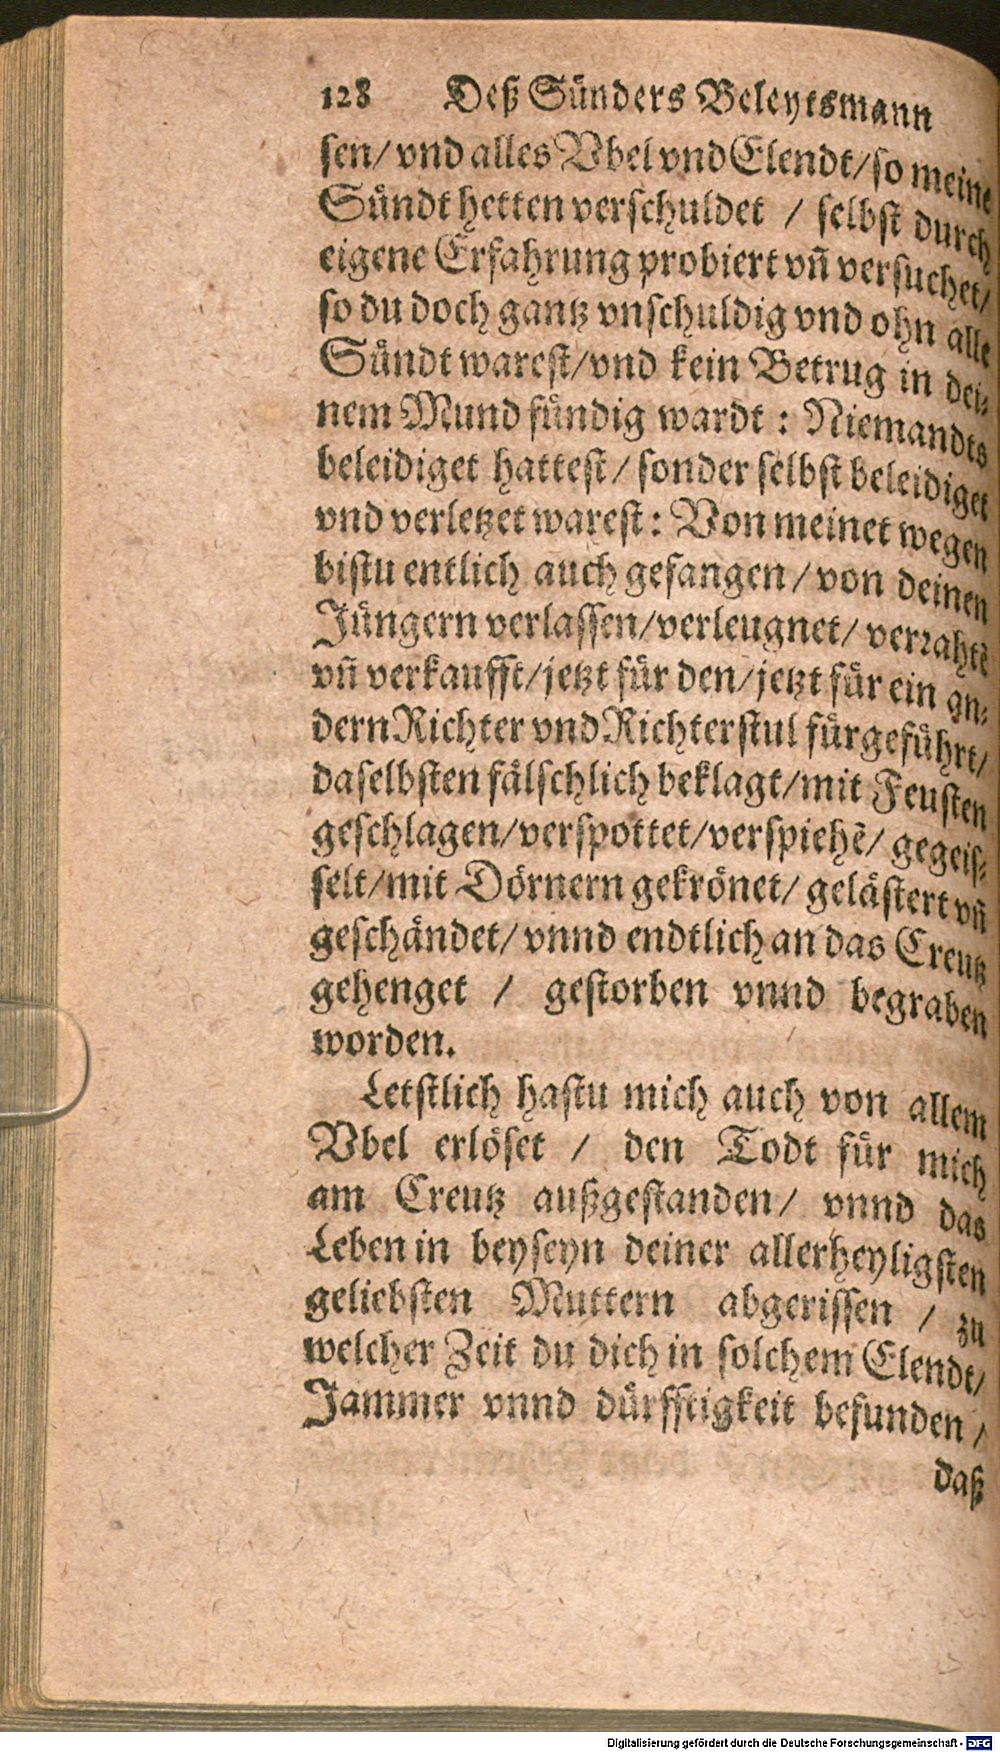 128 Deß Sünders Beleytsmann
sen/ vnd alles Vbel vnd Elendt/ so meine
Sündt hetten verschuldet / selbst durch
eigene Erfahrung probiert vñ versuchet/
so du doch gantz vnschuldig vnd ohn alle
Sündt warest/ vnd kein Betrug in dei-
nem Mund fündig wardt : Niemandts
beleidiget hattest/ sonder selbst beleidiget
vnd verletzet warest : Von meinet wegen
bistu entlich auch gefangen/ von deinen
Jüngern verlassen/ verleugnet/ verrahtē
vñ verkaufft/ jetzt für den/ jetzt für ein an-
dern Richter vnd Richterstul fürgeführt/
daselbsten fälschlich beklagt/ mit Feusten
geschlagen/ verspottet/ verspiehē/ gegeis-
selt/ mit Dörnern gekrönet/ gelästert vñ
geschändet/ vnnd endtlich an das Creutz
gehenget / gestorben vnnd begraben
worden.
Letstlich hastu mich auch von allem
Vbel erlöset / den Todt für mich
am Creutz außgestanden/ vnnd das
Leben in beyseyn deiner allerheyligsten
geliebsten Muttern abgerissen / zu
welcher Zeit du dich in solchem Elendt/
Jammer vnnd dürfftigkeit befunden /
daß
Digitalisierung gefördert durch die Deutsche Forschungsgemeinschaft - DFG